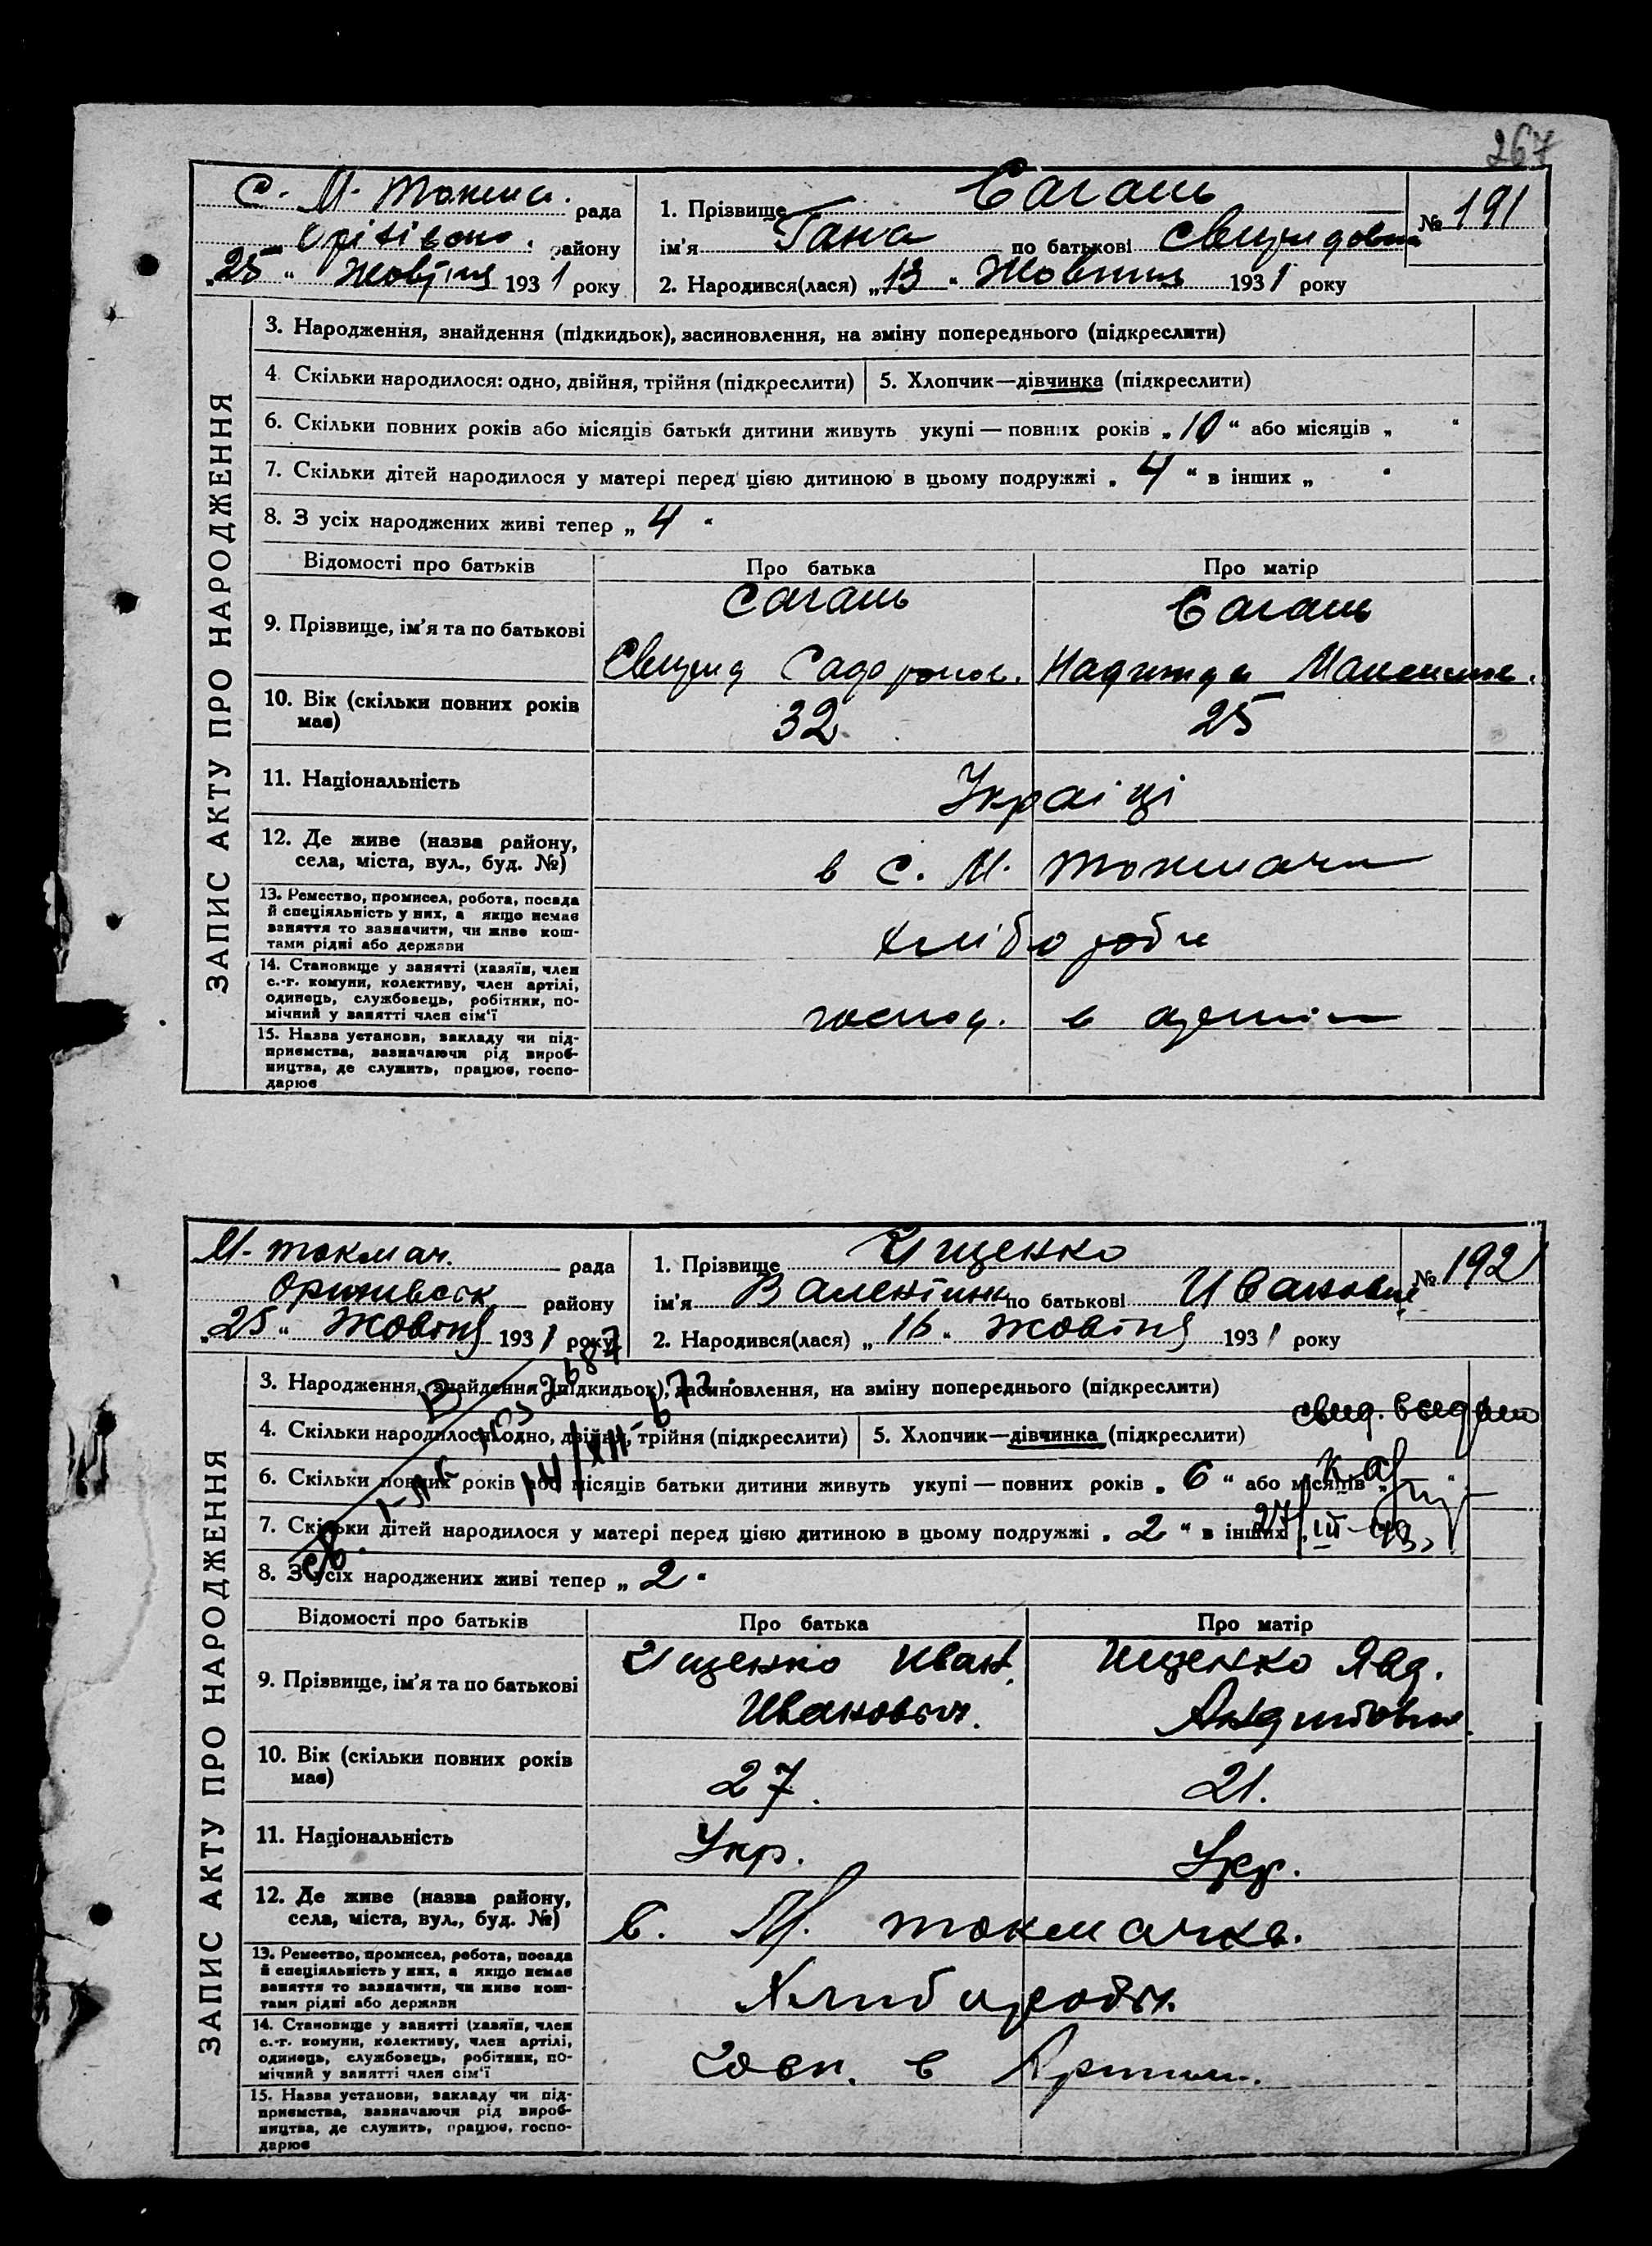 267
С. М. Токмач. рада
району
„25" Жовтня 1931 року
1. Прізвище Сагань
ім'я Гана по батькові Свиридовна
№ 191
2. Народився(лася) „13" Жовтня 1931 року
ЗАПИС АКТУ ПРО НАРОДЖЕННЯ
3. Народження, знайдення (підкидьок), засиновлення, на зміну попереднього (підкреслити)
4. Скільки народилося: одно, двійня, трійня (підкреслити) 5. Хлопчик—дівчинка (підкреслити)
6. Скільки повних років або місяців батьки дитини живуть укупі — повних років „10" або місяців „ "
7. Скільки дітей народилося у матері перед цією дитиною в цьому подружжі „4" в інших „ "
8. З усіх народжених живі тепер „4"
Відомості про батьків Про батька Про матір
9. Прізвище, ім'я та по батькові
Сагань Сагань
Свирид Садоронов. Надежда Максимов.
10. Вік (скільки повних років
має)
32 25
11. Національність
Украіці
12. Де живе (назва району,
села, міста, вул., буд. №)
в с. М. Токмачи
13. Ремество, промисел, робота, посада
й спеціяльність у них, а якщо немає
заняття то зазначити, чи живе кош-
тами рідні або держави
Хліборобы
14. Становище у занятті (хазяїн, член
с.-г. комуни, колективу, член артілі,
одинець, службовець, робітник, по-
мічний у занятті член сім'ї
господ. в артіли
15. Назва установи, закладу чи під-
приємства, зазначаючи рід вироб-
ництва, де служить, працює, госпо-
дарює
М-токмач. рада
району
„25" Жовтня 1931 року
1. Прізвище Ищенко
ім'я Валентина по батькові Ивановна
№ 192
2. Народився(лася) „16" Жовтня 1931 року
ЗАПИС АКТУ ПРО НАРОДЖЕННЯ
3. Народження, знайдення (підкидьок), засиновлення, на зміну попереднього (підкреслити)
4. Скільки народилося: одно, двійня, трійня (підкреслити) 5. Хлопчик—дівчинка (підкреслити)
6. Скільки повних років або місяців батьки дитини живуть укупі — повних років „6" або місяців „ "
7. Скільки дітей народилося у матері перед цією дитиною в цьому подружжі „2" в інших
27/III-43
8. З усіх народжених живі тепер „2"
Відомості про батьків Про батька Про матір
9. Прізвище, ім'я та по батькові
Ищенко Иван Ищенко Явд.
Иванович.
10. Вік (скільки повних років
має)
27. 21.
11. Національність
Укр. Укр.
12. Де живе (назва району,
села, міста, вул., буд. №)
с. М. токмачка.
13. Ремество, промисел, робота, посада
й спеціяльність у них, а якщо немає
заняття то зазначити, чи живе кош-
тами рідні або держави
14. Становище у занятті (хазяїн, член
с.-г. комуни, колективу, член артілі,
одинець, службовець, робітник, по-
мічний у занятті член сім'ї
в Артили.
15. Назва установи, закладу чи під-
приємства, зазначаючи рід вироб-
ництва, де служить, працює, госпо-
дарює